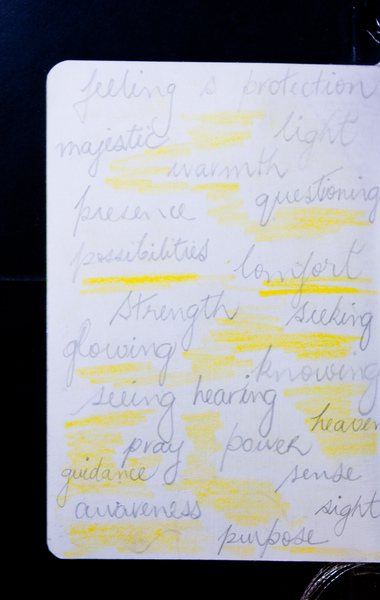 feeling s protection
majestic light
warmth
presence questioning
possibilities comfort
strength seeking
glowing knowing
seeing hearing
heaven
pray power
guidance sense
awareness sight
purpose